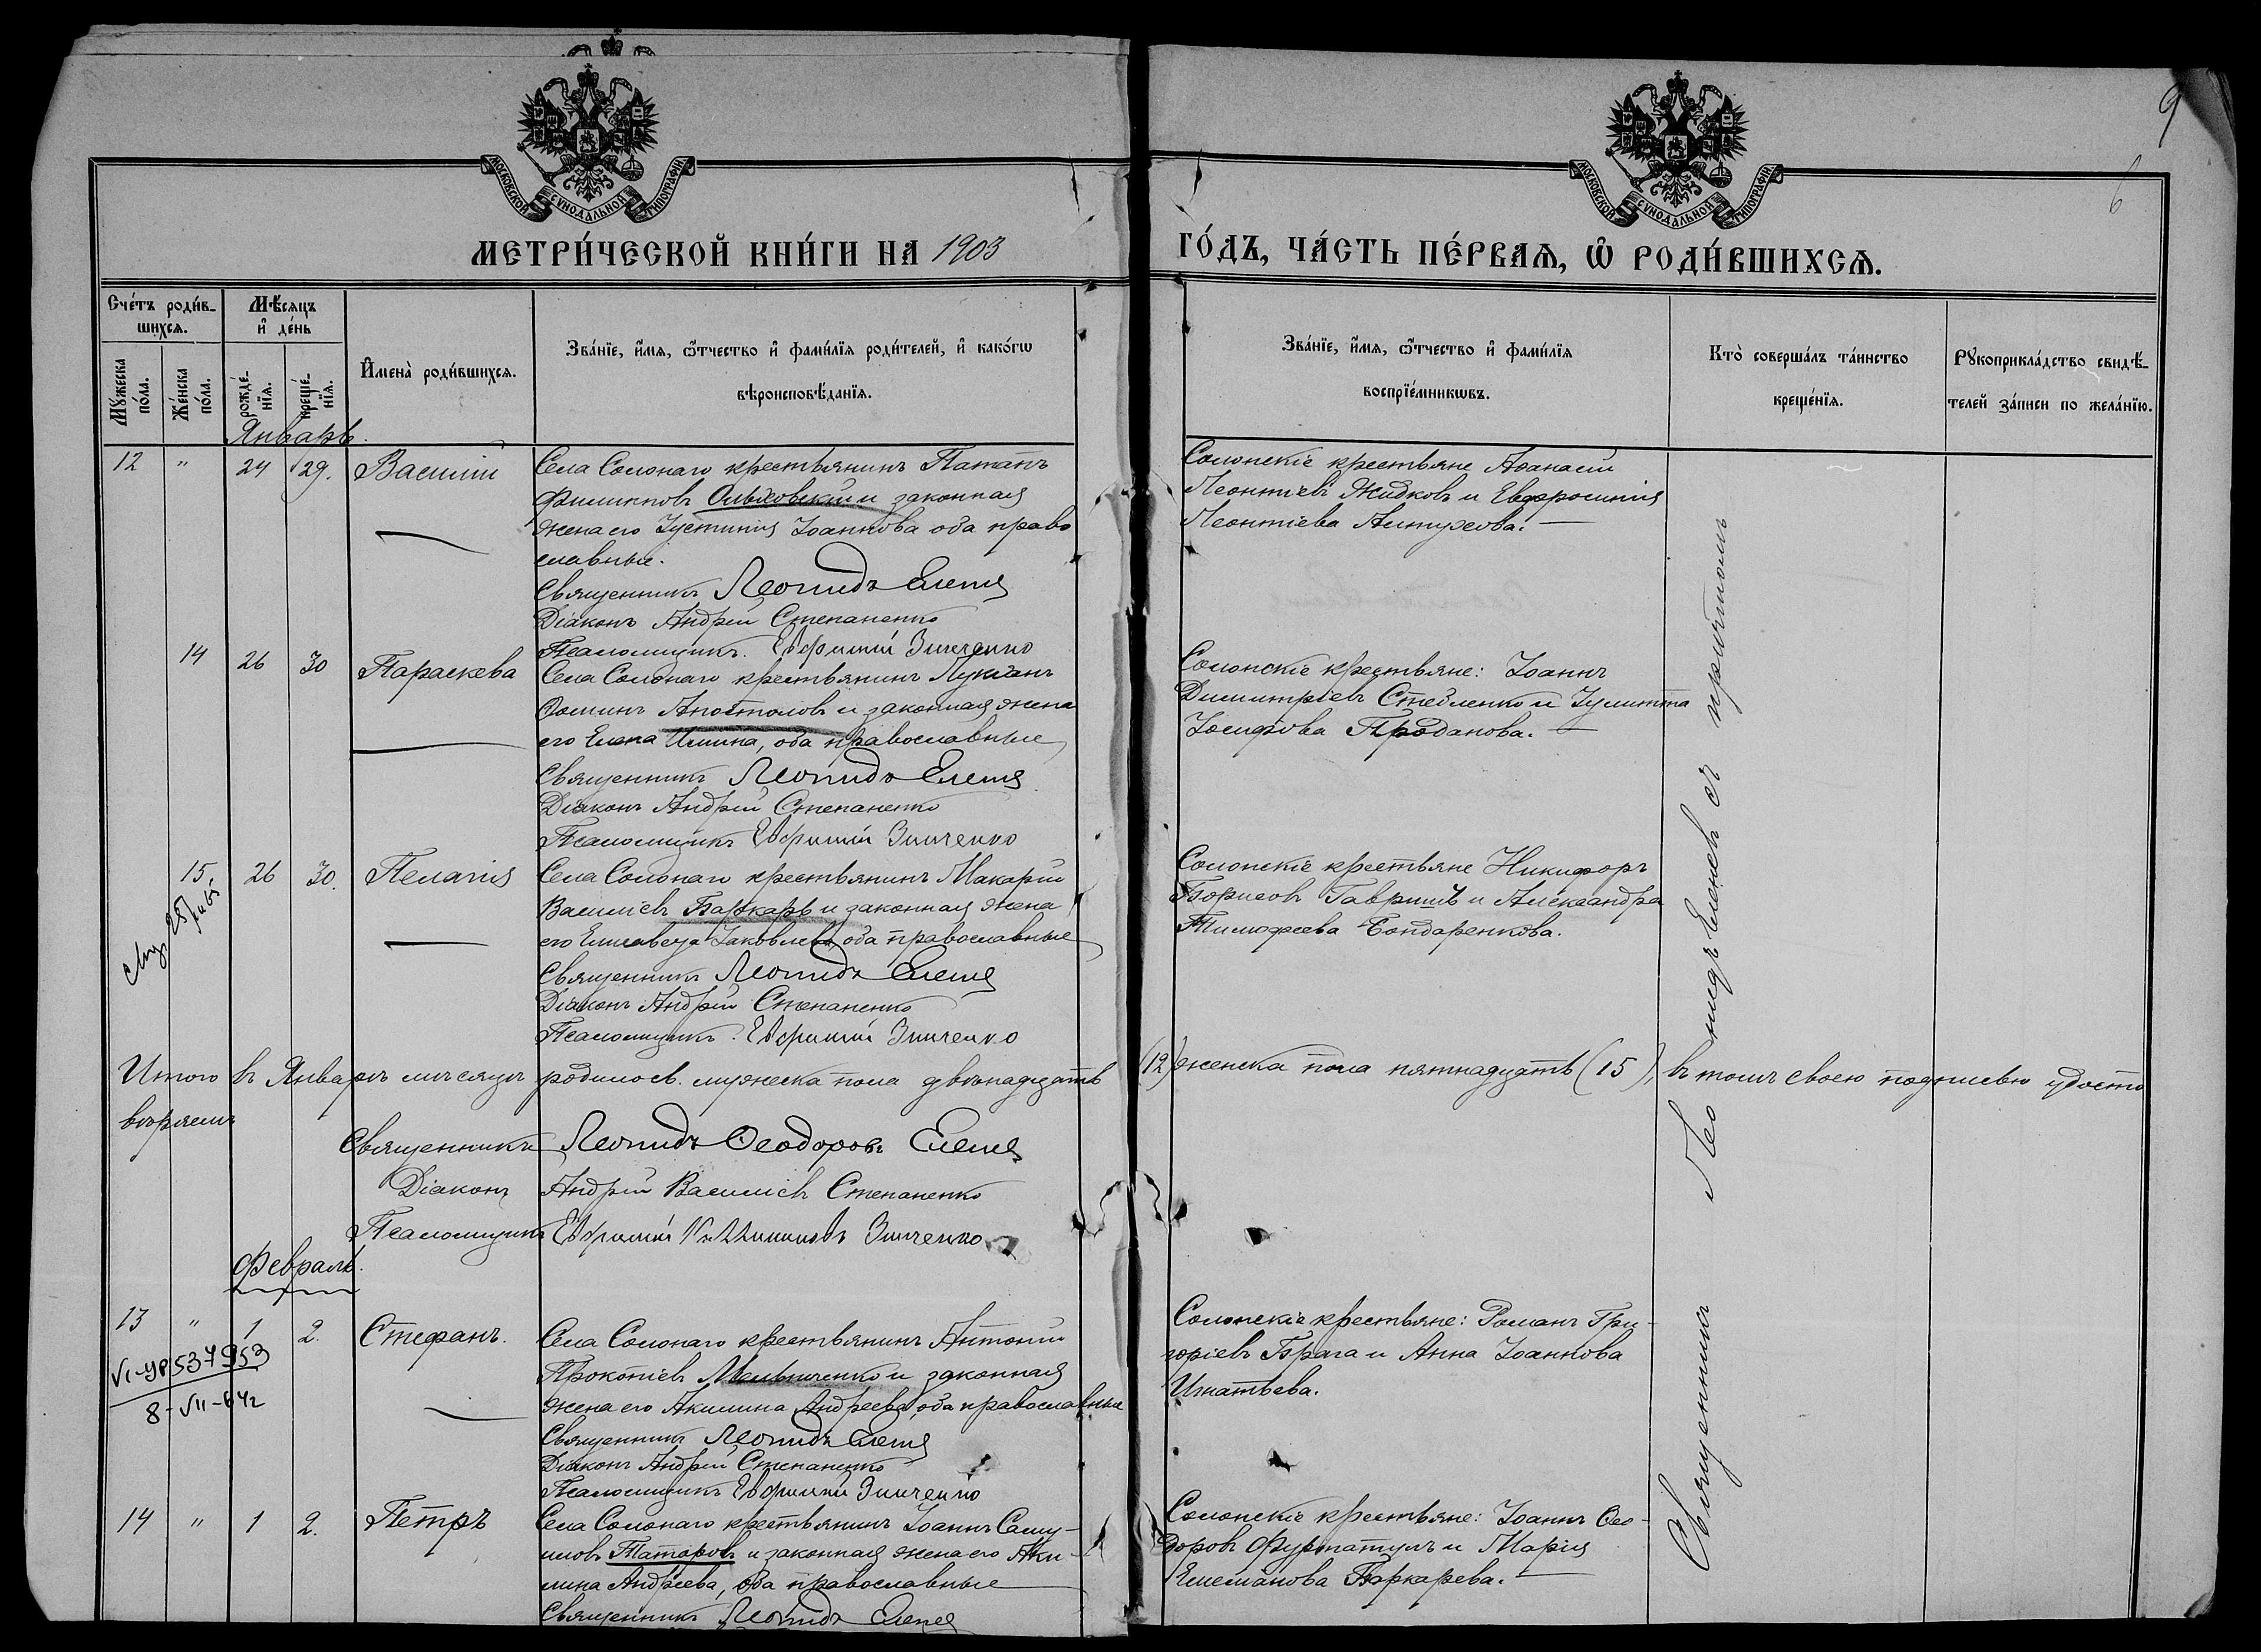 МОСКОВСКОЙ СѴНОДАЛЬНОЙ ТИПОГРАФІИ
МОСКОВСКОЙ СѴНОДАЛЬНОЙ ТИПОГРАФІИ
9
6
МЕТРИ́ЧЕСКОЙ КНИ́ГИ НА 1903
ГО́ДЪ, ЧА́СТЬ ПЕ́РВАѦ, Ѡ҆ РОДИ́ВШИХСѦ.
Сче́тъ роди́в-
шихсѧ.
Мꙋ́жеска
по́ла.
Же́нска
по́ла.
Мѣ́сѧцъ
и҆ де́нь
рожде́-
нїѧ.
креще́-
нїѧ.
И҆мена̀ роди́вшихсѧ.
Зва́нїе, и҆́мѧ, ѻ҆́тчество и҆ фами́лїѧ роди́телей, и҆ како́гѡ
вѣроисповѣ́данїѧ.
Зва́нїе, и҆́мѧ, ѻ҆́тчество и҆ фами́лїѧ
воспрїе́мникѡвъ.
Кто̀ соверша́лъ та́инство
креще́нїѧ.
Рꙋкоприкла́дство свидѣ́-
телей за́писи по жела́нїю.
Январь.
12 " 24 29. Василій
Села Солонаго крестьянинъ Патапъ
Филипповъ Ольховскій и законная
жена его Іустинія Іоаннова оба право
славные.
Священникъ Леонидъ Еленев
Діаконъ Андрей Степаненко
Псаломщикъ. Евфимій Зинченко
Солонскіе крестьяне Аѳанасій
Леонтіевъ Жидковъ и Евфросинія
Леонтіева Алтухова.
14 26 30 Параскева
Села Солонаго крестьянинъ Лукіанъ
Ѳоминъ Апостоловъ и законная жена
его Елена Ильина, оба православные
Священникъ Леонидъ Еленев
Діаконъ Андрей Степаненко
Псаломщикъ Евфимій Зинченко
Солонскіе крестьяне: Іоаннъ
Димитріевъ Стебленко и Іулитта
Іосифова Проданова.
15. 26 30. Пелагія
Села Солонаго крестьянинъ Макарій
Василіевъ Баркарь и законная жена
его Елисавета Іаковлева оба православные
Священникъ Леонидъ Еленев
Діаконъ Андрей Степаненко
Псаломщикъ. Евфимій Зинченко
Солонскіе крестьяне Никифоръ
Борисовъ Гавришъ и Александра
Тимофеева Бондаренкова.
Итого въ Январѣ мѣсяцѣ родилось. мужеска пола двѣнадцать (12) женска пола пятнадцать (15), въ томъ своею подписью удосто
вѣряемъ
Священникъ Леонидъ Ѳеодоровъ Еленев
Діаконъ Андрей Василіевъ Степаненко
Псаломщикъ Евфимій Зинченко
Февраль.
13 " 1 2. Стефанъ.
VI-УР 537953
8-VII-64г
Села Солонаго крестьянинъ Антоній
Прокопіевъ Мельниченко и законная
жена его Акилина Андреева, оба православные
Священникъ Леонидъ Еленев
Діаконъ Андрей Степаненко
Псаломщикъ Евфимій Зинченко
Солонскіе крестьяне: Романъ Гри-
горіевъ Брага и Анна Іоаннова
Игнатьева.
14 " 1 2. Петръ
Села Солонаго крестьянинъ Іоаннъ Саму-
иловъ Татаровъ и законная жена его Аки-
лина Андреева, оба православные
Священникъ Леонидъ Еленев
Солонскіе крестьяне: Іоаннъ Ѳео-
доровъ и Марія
Баркарева.
Священникъ Леонидъ Еленевъ съ причтомъ